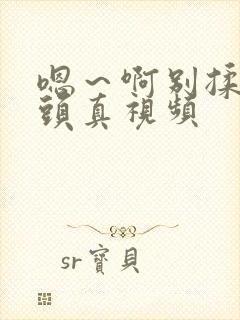 嗯～啊别揉
頭真視頻
sr寶貝